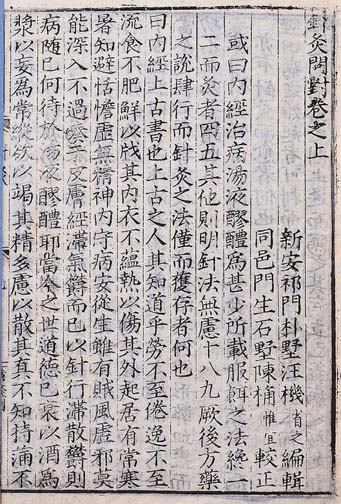 針灸問對卷之上
新安祁門朴墅汪機省之編輯
同邑門生石墅陳桷惟宜較正
或曰內經治病湯液醪醴爲甚少所載服餌之法纔一
二而灸者四五其他則明針法無慮十八九厥後方藥
之說肆行而針灸之法僅而獲存者何也
曰內經上古書也上古之人其知道乎勞不至倦逸不至
流食不肥鮮以戕其內衣不蘊熱以傷其外起居有常寒
暑知避恬憺虛無精神內守病安從生雖有賊風虛邪莫
能深入不過湊于皮膚經滯氣鬱而已以針行滯散鬱則
病隨已何待於湯液醪醴耶當今之世道德已衰以酒爲
漿以妄爲常縱欲以竭其精多慮以散其真不知持滿不